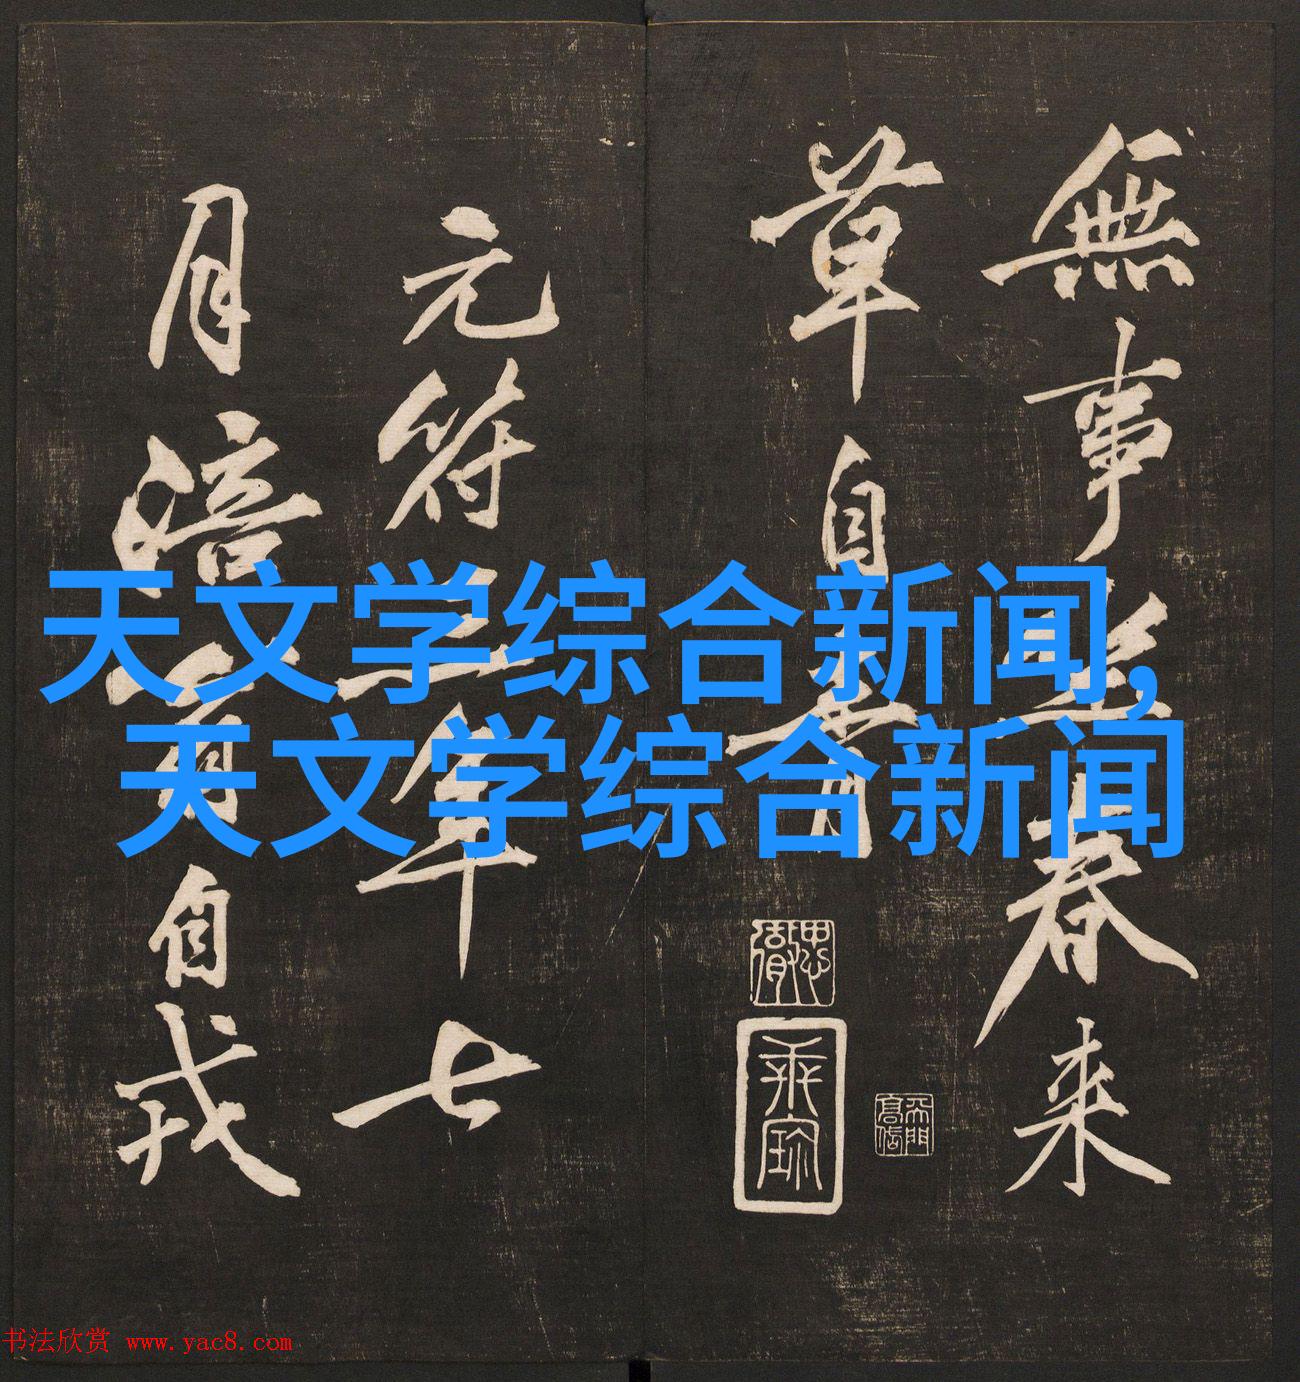 無事坐春来
草自青
元符二年七
月涪翁自戎
天文学综合新闻,
天文学综合新闻
书法欣赏 www.yac8.com